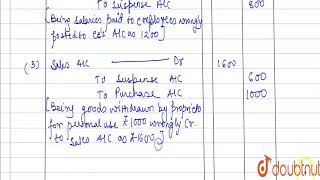 To Suspense A/C 800
[Being salaries paid to employees wrongly
posted to A/C as 1200]
(3) Sales A/C Dr 1600
To Suspense A/C 600
To Purchase A/C 1000
[Being goods withdrawn by
for personal use ₹1000 wrongly Cr.
to Sales A/C as ₹1600]
doubtnut